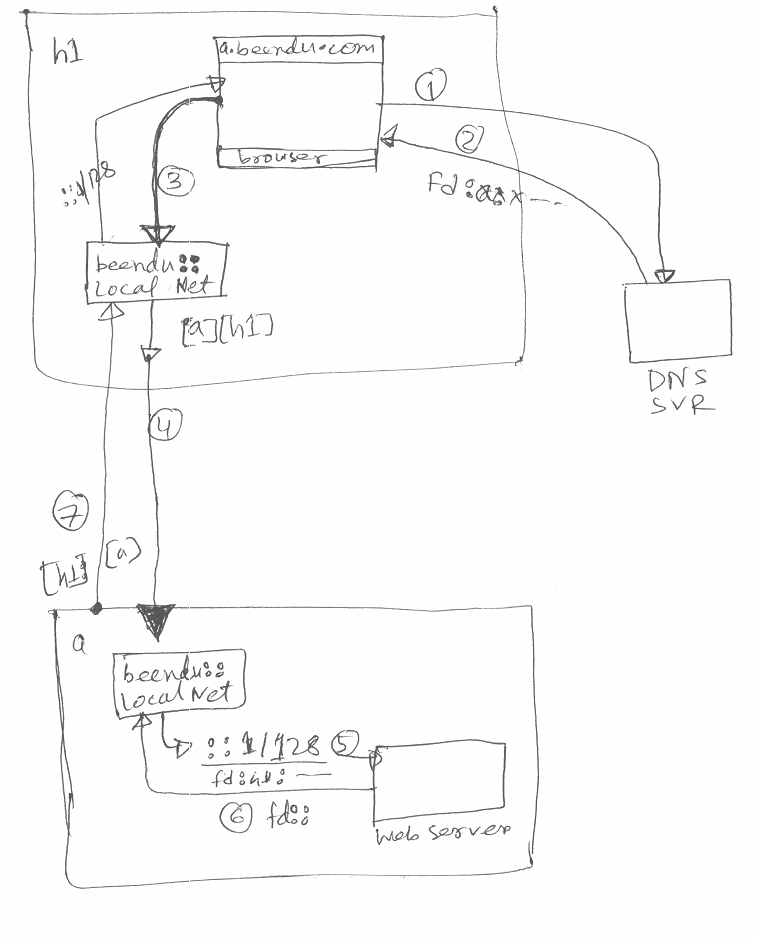 h1
a.beendu.com
browser
1
2
3
::1/128
beendu::
Local Net
[a][h1]
DNS
SVR
4
7
[h1]
[a]
a
beendu::
Local Net
::1/128
5
fd:h1:
6
fd::
Web Server